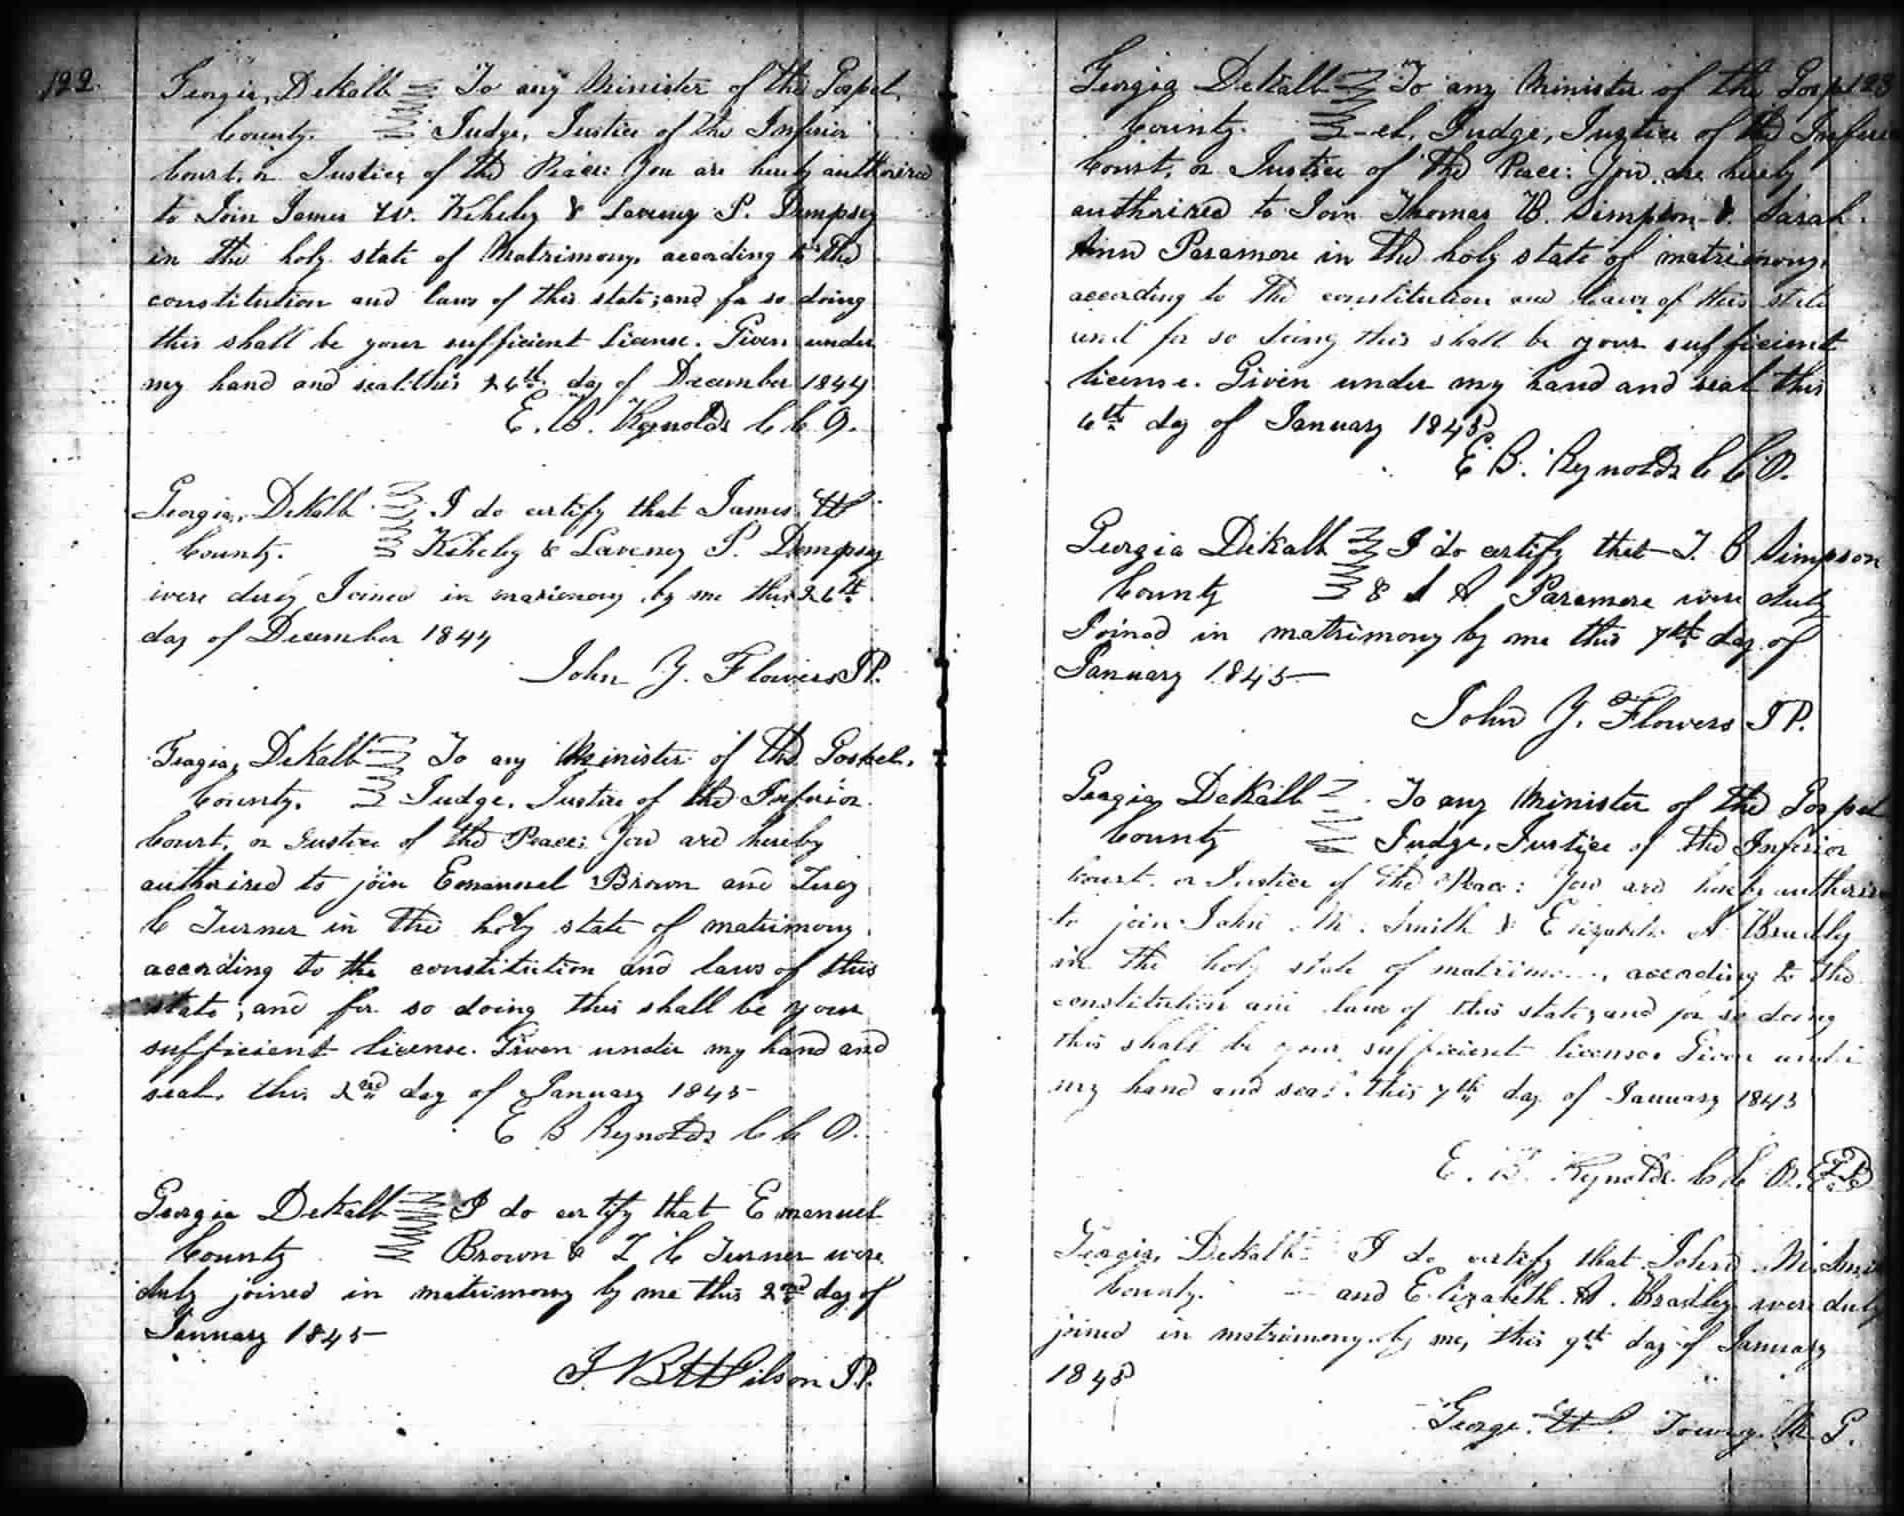 122
Georgia, DeKalb To any Minister of the Gospel,
County. Judge, Justice of the Inferior
Court, or Justice of the Peace: You are hereby authorised
to Join James W. Keheley & Laveney P. Dempsey
in the holy state of Matrimony, according to the
constitution and laws of this state; and for so doing
this shall be your sufficient License. Given under
my hand and seal this 24th day of December 1844
E. B. Reynolds C C O.
Georgia, DeKalb I do certify that James W
County. Keheley & Laveney P. Dempsey
were duly Joined in matrimony by me this 26th
day of December 1844
John Y. Flowers J.P.
Georgia, DeKalb To any Minister of the Gospel,
County, Judge, Justice of the Inferior
Court, or Justice of the Peace: You are hereby
authorised to join Emanuel Brown and
C Turner in the holy state of matrimony
according to the constitution and laws of this
state; and for so doing this shall be your
sufficient license. Given under my hand and
seal, this 2nd day of January 1845
E B Reynolds C C O.
Georgia DeKalb I do certify that Emanuel
County Brown & L C Turner were
duly joined in matrimony by me this 2nd day of
January 1845
Wilson J.P.
123
Georgia DeKalb To any Minister of the Gosp
County. -el, Judge, Justice of the Inferior
Court, or Justice of the Peace: You are hereby
authorised to Join Thomas B. Simpson & Sarah
Ann Paramore in the holy state of matrimony,
according to the constitution and laws of this state
and for so doing this shall be your sufficient
license. Given under my hand and seal this
6th day of January 1845
E. B. Reynolds C C O.
Georgia DeKalb I do certify that T. B Simpson
County & S A Paramore were duly
Joined in matrimony by me this 7th day of
January 1845
John Y. Flowers J P.
Georgia DeKalb To any Minister of the Gospel
County Judge, Justice of the Inferior
Court, or Justice of the Peace: You are hereby authorised
to join John M. Smith & Elizabeth A Bradley
in the holy state of matrimony, according to the
constitution and laws of this state; and for so doing
this shall be your sufficient license. Given under
my hand and seal this 7th day of January 1845
E. B. Reynolds C C O.
Georgia, DeKalb I do certify that John M. Smith
County. and Elizabeth A. Bradley were duly
joined in matrimony by me, this 9th day of January
1845
George W. M G.